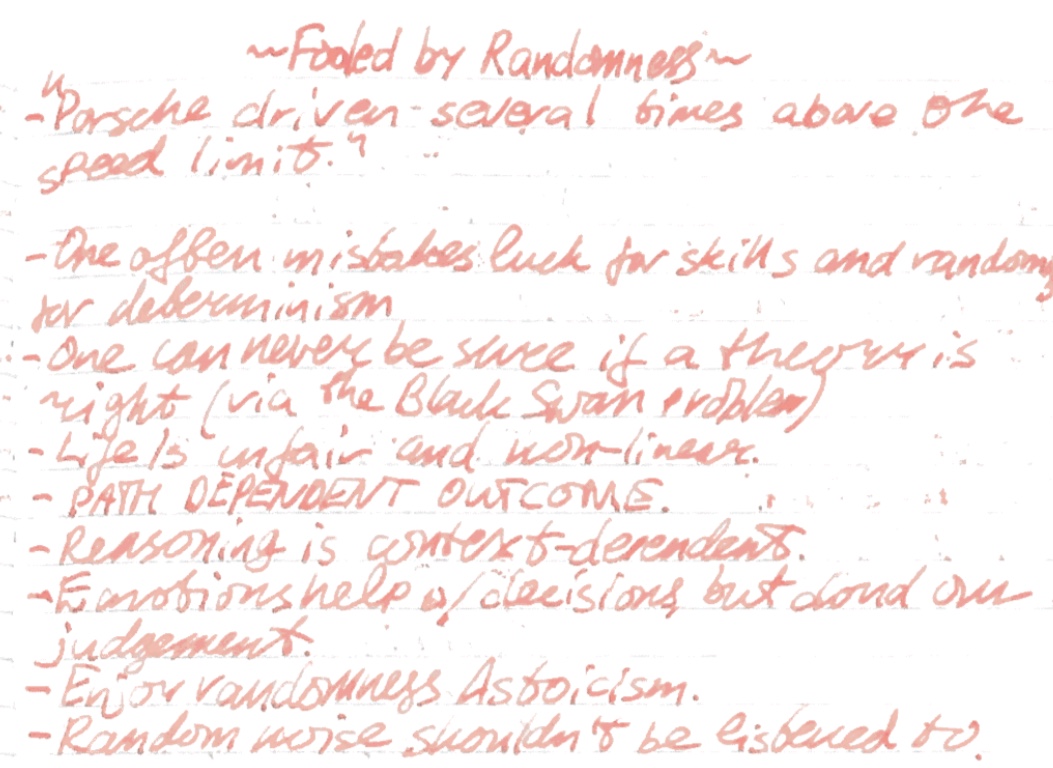 ~Fooled by Randomness~
-"Porsche driven several times above the
speed limit."
-One often mistakes luck for skills and random
for determinism
-One can never be sure if a theory is
right (via the Black Swan problem)
-Life is unfair and non-linear.
- PATH DEPENDENT OUTCOME.
-Reasoning is context-dependent.
-Emotions help w/decisions, but cloud our
judgement.
-Enjoy randomness Astoicism.
-Random noise shouldn't be listened to.